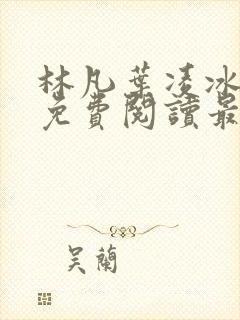 林凡葉凌冰
免費閱讀最
吴蘭